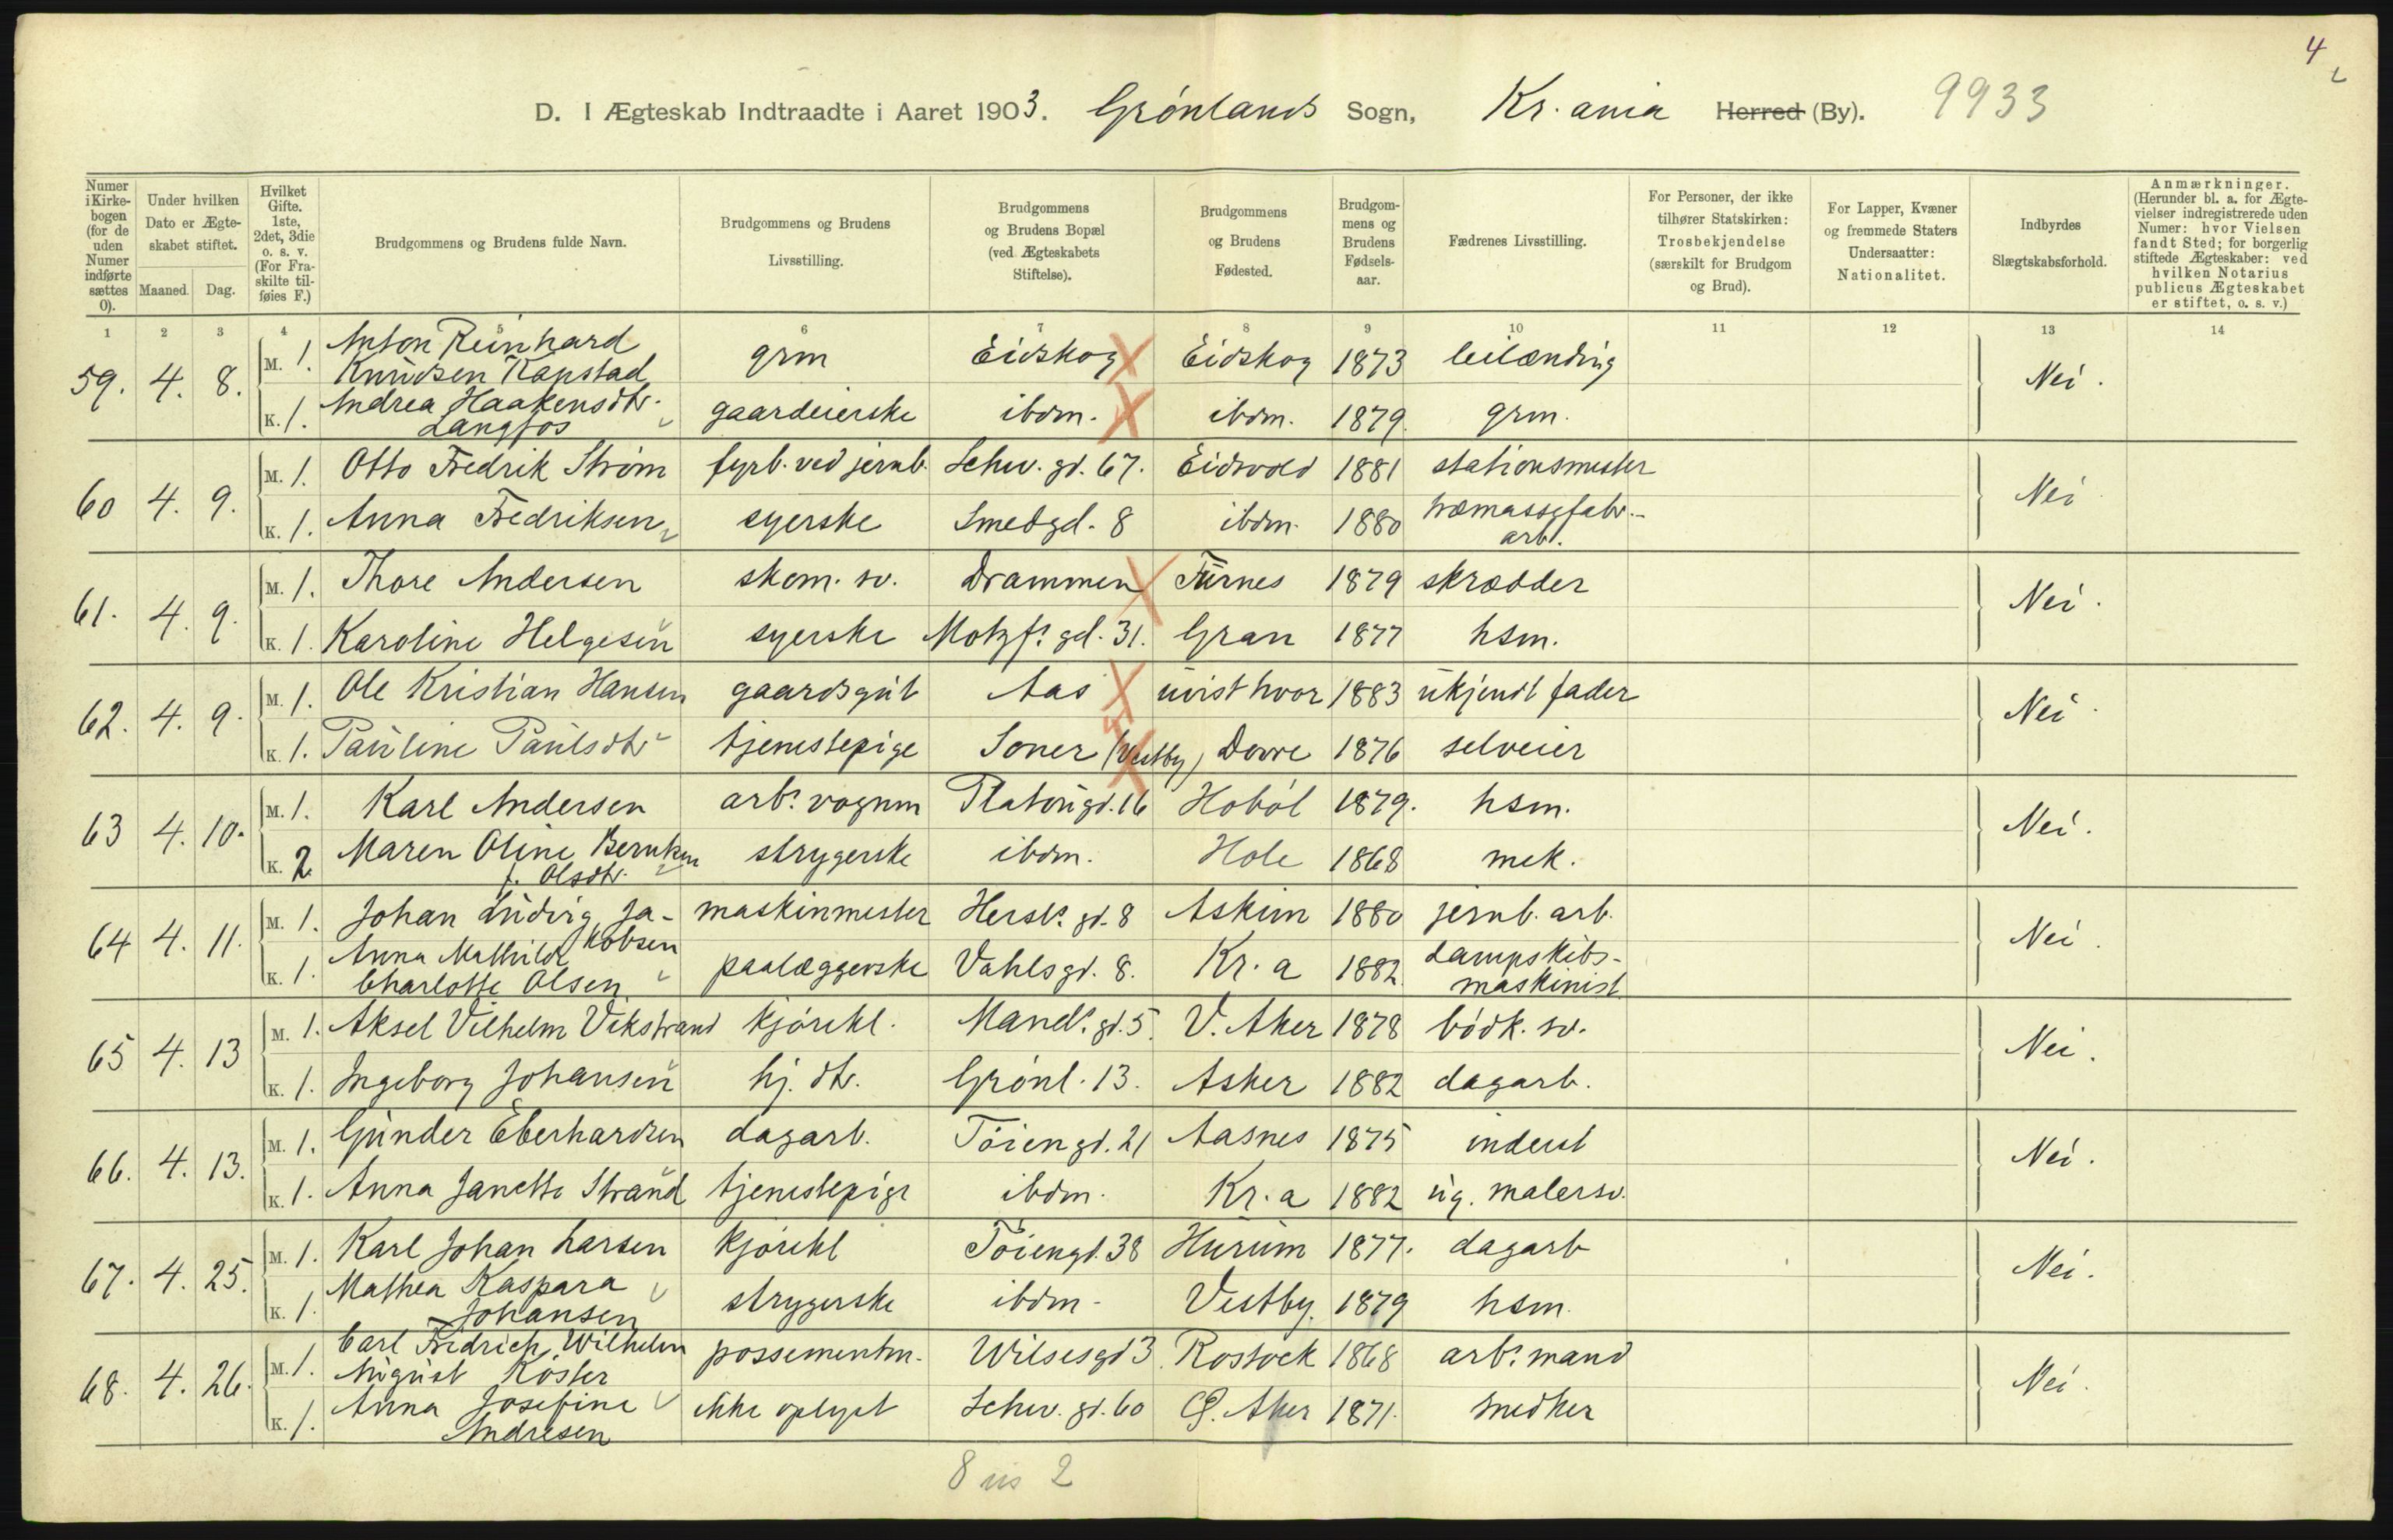 4
D. I Ægteskab Indtraadte i Aaret 1903. Grønlands Sogn, Kr.ania Herred (By). 9933
Numer i Kirkebogen (for de uden Numer indførte sættes 0).
Under hvilken Dato er Ægteskabet stiftet.
Maaned. Dag.
Hvilket Gifte. 1ste, 2det, 3die o. s. v. (For Fraskilte tilføies F.)
Brudgommens og Brudens fulde Navn.
Brudgommens og Brudens Livsstilling.
Brudgommens og Brudens Bopæl (ved Ægteskabets Stiftelse).
Brudgommens og Brudens Fødested.
Brudgommens og Brudens Fødselsaar.
Fædrenes Livsstilling.
For Personer, der ikke tilhører Statskirken: Trosbekjendelse (særskilt for Brudgom og Brud).
For Lapper, Kvæner og fremmede Staters Undersaatter: Nationalitet.
Indbyrdes Slægtskabsforhold.
Anmærkninger. (Herunder bl. a. for Ægtevielser indregistrerede uden Numer: hvor Vielsen fandt Sted; for borgerlig stiftede Ægteskaber: ved hvilken Notarius publicus Ægteskabet er stiftet, o. s. v.)
1 2 3 4 5 6 7 8 9 10 11 12 13 14
59. 4. 8. M. 1. Anton Reinhard Knudsen Rapstad grm Eidskog Eidskog 1873 leilænding Nei.
K. 1. Andrea Haakensdtr. Langfos gaardeierske ibdm. ibdm. 1879. grm.
60 4. 9. M. 1. Otto Fredrik Strøm fyrb. ved jernb. Schw. gd. 67. Eidsvold 1881 stationsmester Nei
K. 1. Anna Fredriksen syerske Smedgd. 8 ibdm. 1880 træmassefabr.-arb.
61. 4. 9. M. 1. Thore Andersen skom. sv. Drammen Furnes 1879 skrædder Nei.
K. 1. Karoline Helgesen syerske Motzf.s gd. 31. Gran 1877 hsm.
62. 4. 9. M. 1. Ole Kristian Hansen gaardsgut Aas uvist hvor 1883 ukjendt fader Nei
K. 1. Pauline Paulsdtr tjenestepige Soner (Vestby) Dovre 1876 selveier
63 4. 10. M. 1. Karl Andersen arb.s vognm Platougd. 16 Hobøl 1879. hsm. Nei.
K. 2. Maren Oline Berntsen f. Olsdtr. strygerske ibdm. Hole 1868 mek.
64 4. 11. M. 1. Johan Ludvig Jakobsen maskinmester Hersl.s gd. 8 Askim 1880 jernb. arb. Nei.
K. 1. Anna Mathilde Charlotte Olsen paalæggerske Vahlsgd. 8. Kr.a 1882. dampskibs-maskinist
65 4. 13 M. 1. Aksel Vilhelm Vikstrand kjørekl. Mandl.s gd. 5. V. Aker 1878 bødk. sv. Nei.
K. 1. Ingeborg Johansen hj. dtr. Grønl. 13. Asker 1882 dagarb.
66. 4. 13. M. 1. Gunder Eberhardsen dagarb. Tøiengd. 21 Aasnes 1875 inderst Nei.
K. 1. Anna Janette Strand tjenestepige ibdm. Kr.a 1882 ug. malersv.
67. 4. 25. M. 1. Karl Johan Larsen kjørekl Tøiengd. 38 Hurum 1877. dagarb Nei.
K. 1. Mathea Kaspara Johansen strygerske ibdm - Vestby. 1879 hsm.
68. 4. 26. M. 1. Carl Fridrich Wilhelm August Köster possementm. Wilsesgd 3. Rostock 1868 arb.s mand Nei.
K. 1. Anna Josefine Andresen ikke oplyst Schw. gd. 60 Ø. Aker 1871. snedker
8 2